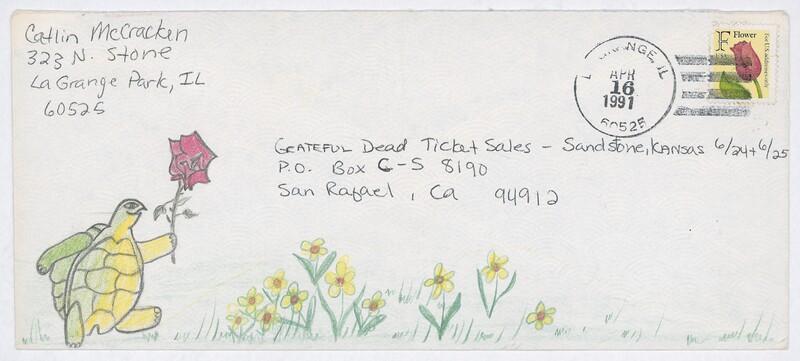 Catlin McCracken
323 N. Stone
La Grange Park, IL
60525
F Flower
For U.S. addresses only
GRANGE, IL
APR
16
1991
60525
Grateful Dead Ticket Sales - Sandstone, Kansas 6/24 + 6/25
P.O. Box C-S 8190
San Rafael, Ca 94912